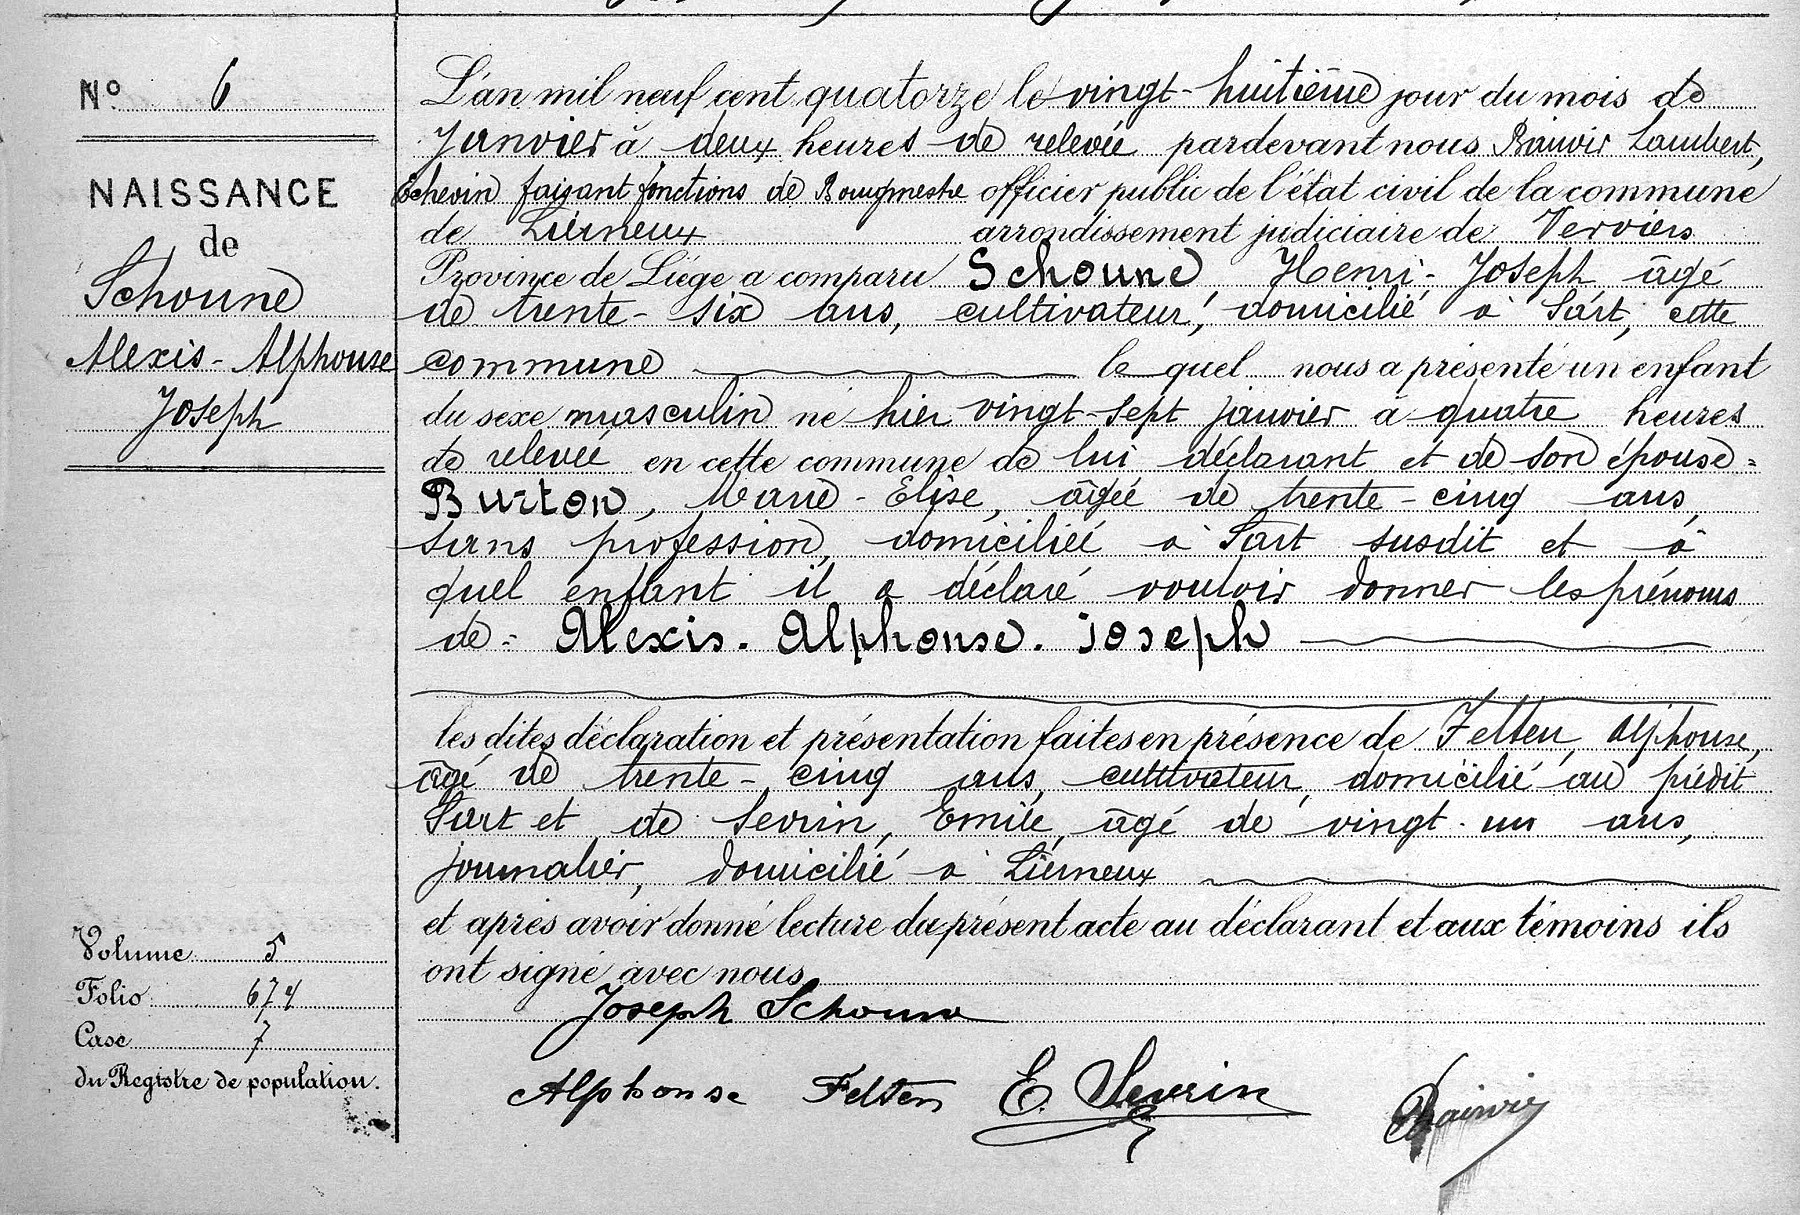 Nº 6
NAISSANCE
de
Schoune
Alexis - Alphonse
Joseph
L'an mil neuf cent quatorze le vingt-huitième jour du mois de
Janvier à deux heures de relevée pardevant nous Lambert,
Echevin faisant fonctions de Bourgmestre officier public de l'état civil de la commune
de Lierneux arrondissement judiciaire de Verviers
Province de Liége a comparu Schoune, Henri-Joseph, âgé
de trente-six ans, cultivateur, domicilié à Sart, cette
commune le quel nous a présenté un enfant
du sexe masculin né hier vingt-sept janvier à quatre heures
de relevée en cette commune de lui déclarant et de son épouse=
Burton, Marie-Elise, âgée de trente-cinq ans,
sans profession, domiciliée à Sart susdit et à
quel enfant il a déclaré vouloir donner les prénoms
de= Alexis. Alphonse. Joseph
les dites déclaration et présentation faites en présence de Felten, Alphonse,
âgé de trente-cinq ans, cultivateur, domicilié au prédit
Sart et de Sevrin, Emile, âgé de vingt-un ans,
journalier, domicilié à Lierneux
et après avoir donné lecture du présent acte au déclarant et aux témoins ils
ont signé avec nous
Joseph Schoune
Alphonse Felten E. Sevrin
Volume 5
Folio 674
Case 7
du Registre de population.